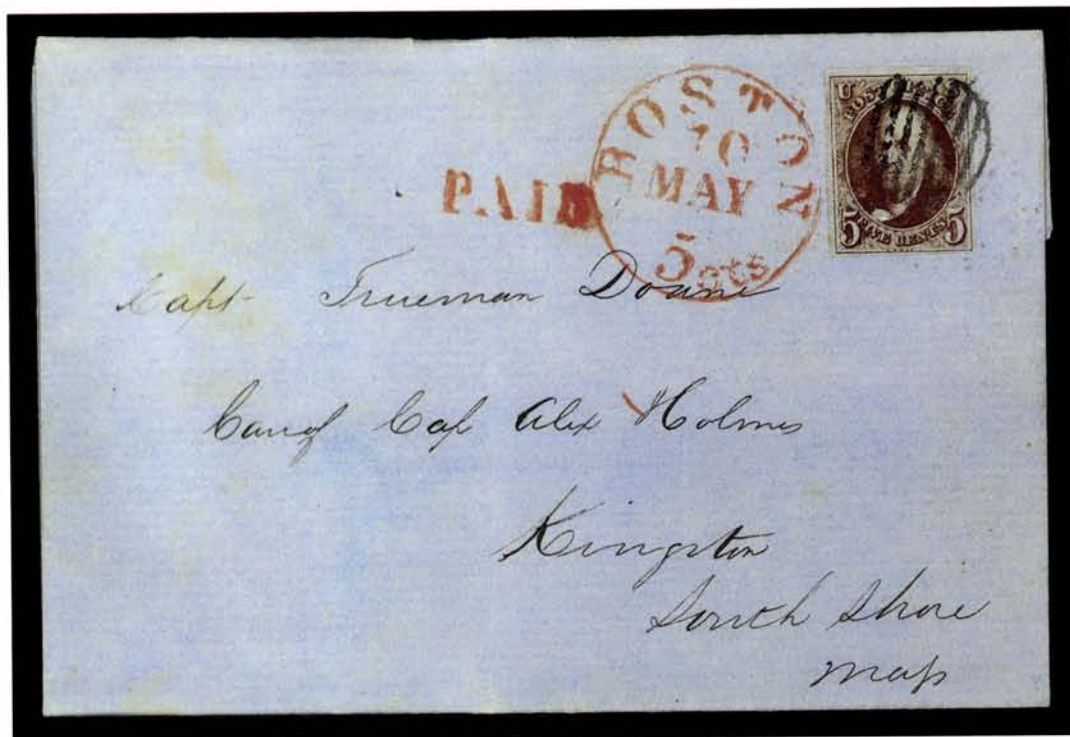 BOSTON
10
MAY
5 cts
PAID
U
POST OFFICE
5 FIVE CENTS 5
Capt Trueman Doane
Care of Cap Alex Holmes
Kingston
South Shore
Mass